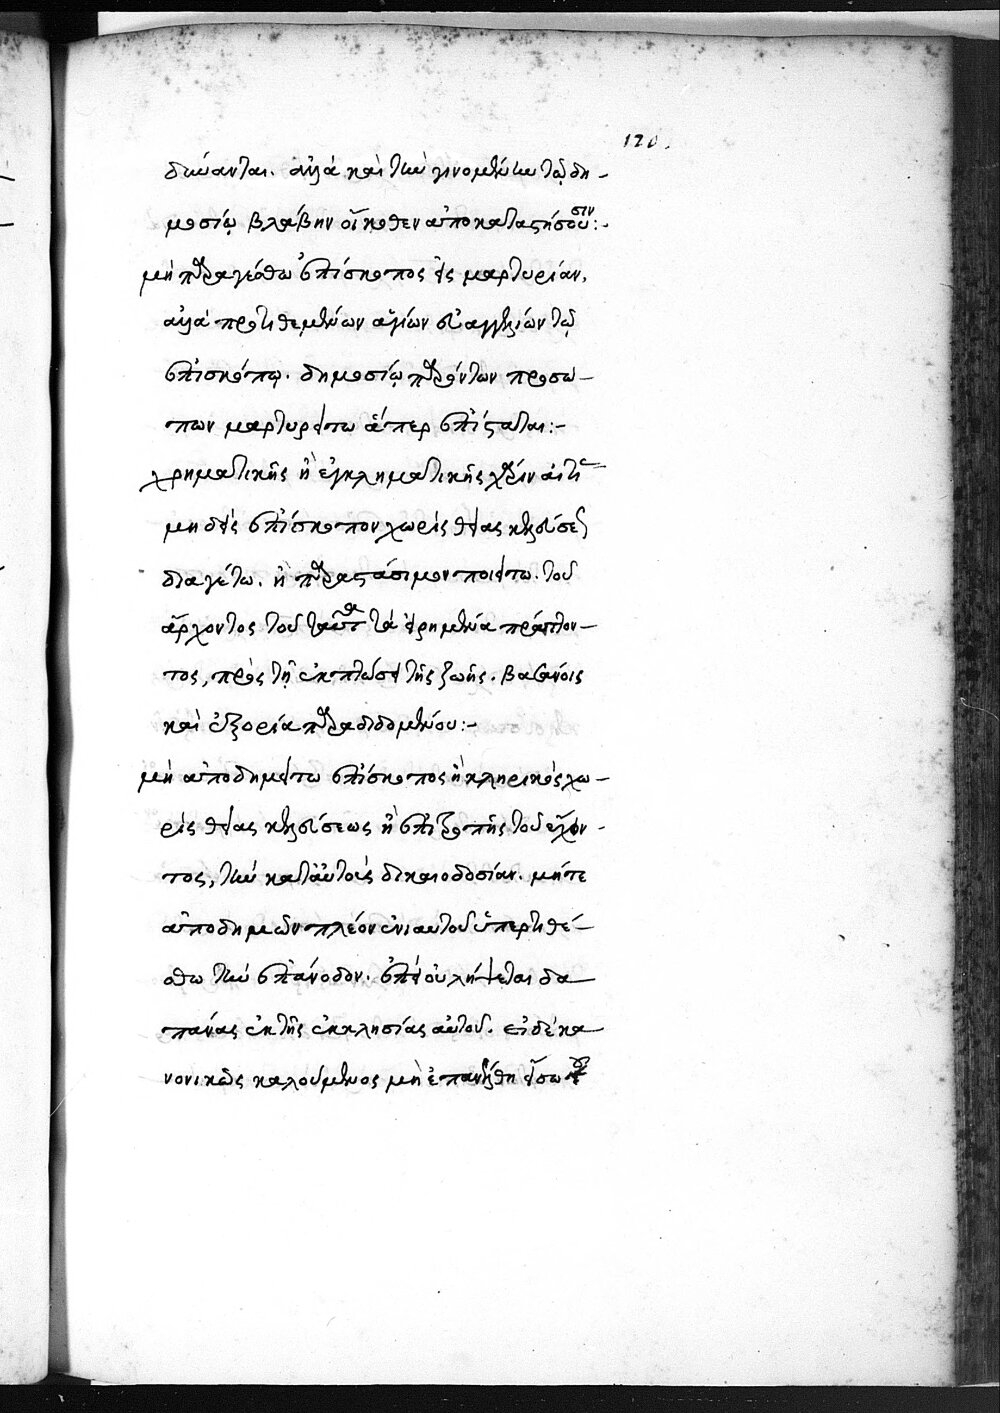 120.
δικάονται. ἀλλὰ καὶ τὴν γινομένην τῷ δη-
μοσίῳ βλάβην οἴκοθεν ἀποκαταστήσουσιν:-
μὴ παραγέσθω ἐπίσκοπος εἰς μαρτυρίαν.
ἀλλὰ προτιθεμένων ἁγίων εὐαγγελίων τῷ
ἐπισκόπῳ. δημοσίῳ παρόντων προσώ-
πων μαρτυρείτω ἅπερ ἐπίσταται:-
χρηματικῆς ἢ ἐγκληματικῆς χάριν αἰτί
μηδεὶς ἐπίσκοπον χωρὶς θείας κελεύσεως
διαγέτω. ἢ παραστάσιμον ποιείτω. τοῦ
ἄρχοντος τοῦ ταῦτα τὰ εἰρημένα πράττον-
τος, πρὸς τῇ ἐκπτώσει τῆς ζωῆς. βασάνοις
καὶ ἐξορία παραδιδομένου:-
μὴ ἀποδημείτω ἐπίσκοπος ἢ κληρικὸς χω-
ρὶς θείας κελεύσεως ἢ ἐπιτροπῆς τοῦ ἔχον-
τος, τὴν κατ' αὐτοὺς δικαιοδοσίαν. μήτε
ἀποδημῶν πλέον ἐνιαυτοῦ ὑπερτιθέ-
σθω τὴν ἐπάνοδον. ἐπεὶ οὐ λήψεται δα-
πάνας ἐκ τῆς ἐκκλησίας αὐτοῦ. εἰ δὲ κα-
νονικῶς καλούμενος μὴ ἐπανέλθῃ εἴσω